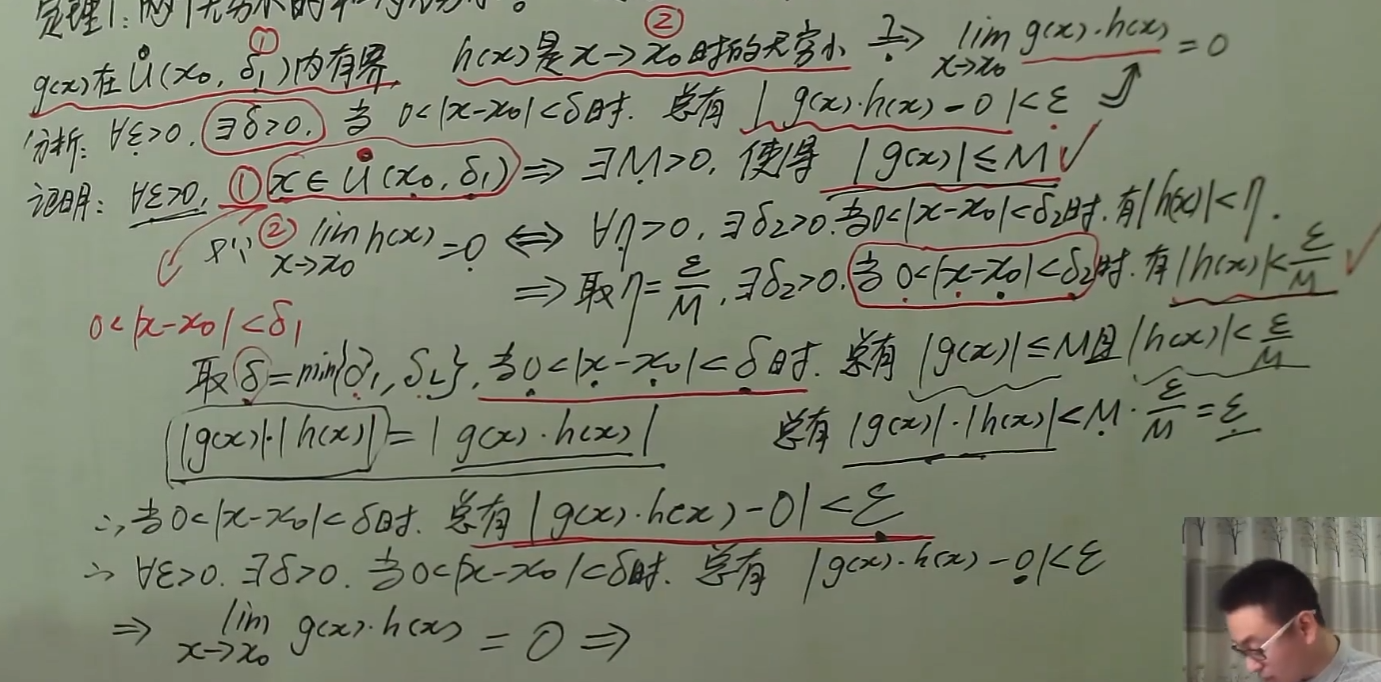 定理1:两个无穷小的和为无穷小。
g(x)在Ů(x₀, δ₁)内有界 ① h(x)是x→x₀时的无穷小 ② ?⇒ lim_{x→x₀} g(x)·h(x) = 0
分析: ∀ε>0, ∃δ>0, 当 0<|x-x₀|<δ时. 总有 |g(x)·h(x)-0|<ε
证明: ∀ε>0, ① x∈Ů(x₀, δ₁) ⇒ ∃M>0, 使得 |g(x)|≤M ✓
又∵ ② lim_{x→x₀} h(x)=0 ⇔ ∀η>0, ∃δ₂>0.当0<|x-x₀|<δ₂时. 有|h(x)|<η.
⇒ 取η=ε/M, ∃δ₂>0, 当 0<|x-x₀|<δ₂时. 有 |h(x)|<ε/M ✓
0<|x-x₀|<δ₁
取δ=min{δ₁, δ₂}, 当0<|x-x₀|<δ时. 总有 |g(x)|≤M且|h(x)|<ε/M
|g(x)|·|h(x)|=|g(x)·h(x)| 总有 |g(x)|·|h(x)|<M·ε/M=ε
∴ 当0<|x-x₀|<δ时. 总有 |g(x)·h(x)-0|<ε
∴ ∀ε>0. ∃δ>0. 当0<|x-x₀|<δ时. 总有 |g(x)·h(x)-0|<ε
⇒ lim_{x→x₀} g(x)·h(x) = 0 ⇒